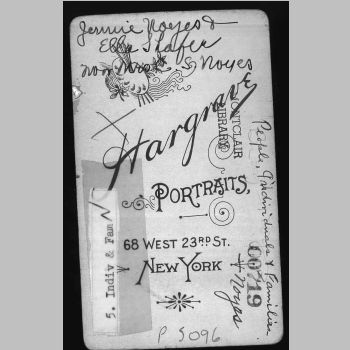 Jennie Noyes &
Ella Slafer
now Mrs. G Noyes
Hargrave
PORTRAITS,
68 WEST 23RD ST.
NEW YORK
MONTCLAIR
LIBRARY
People, Individuals & Families
Noyes
00219
5. Indiv & Fam N
P 5096